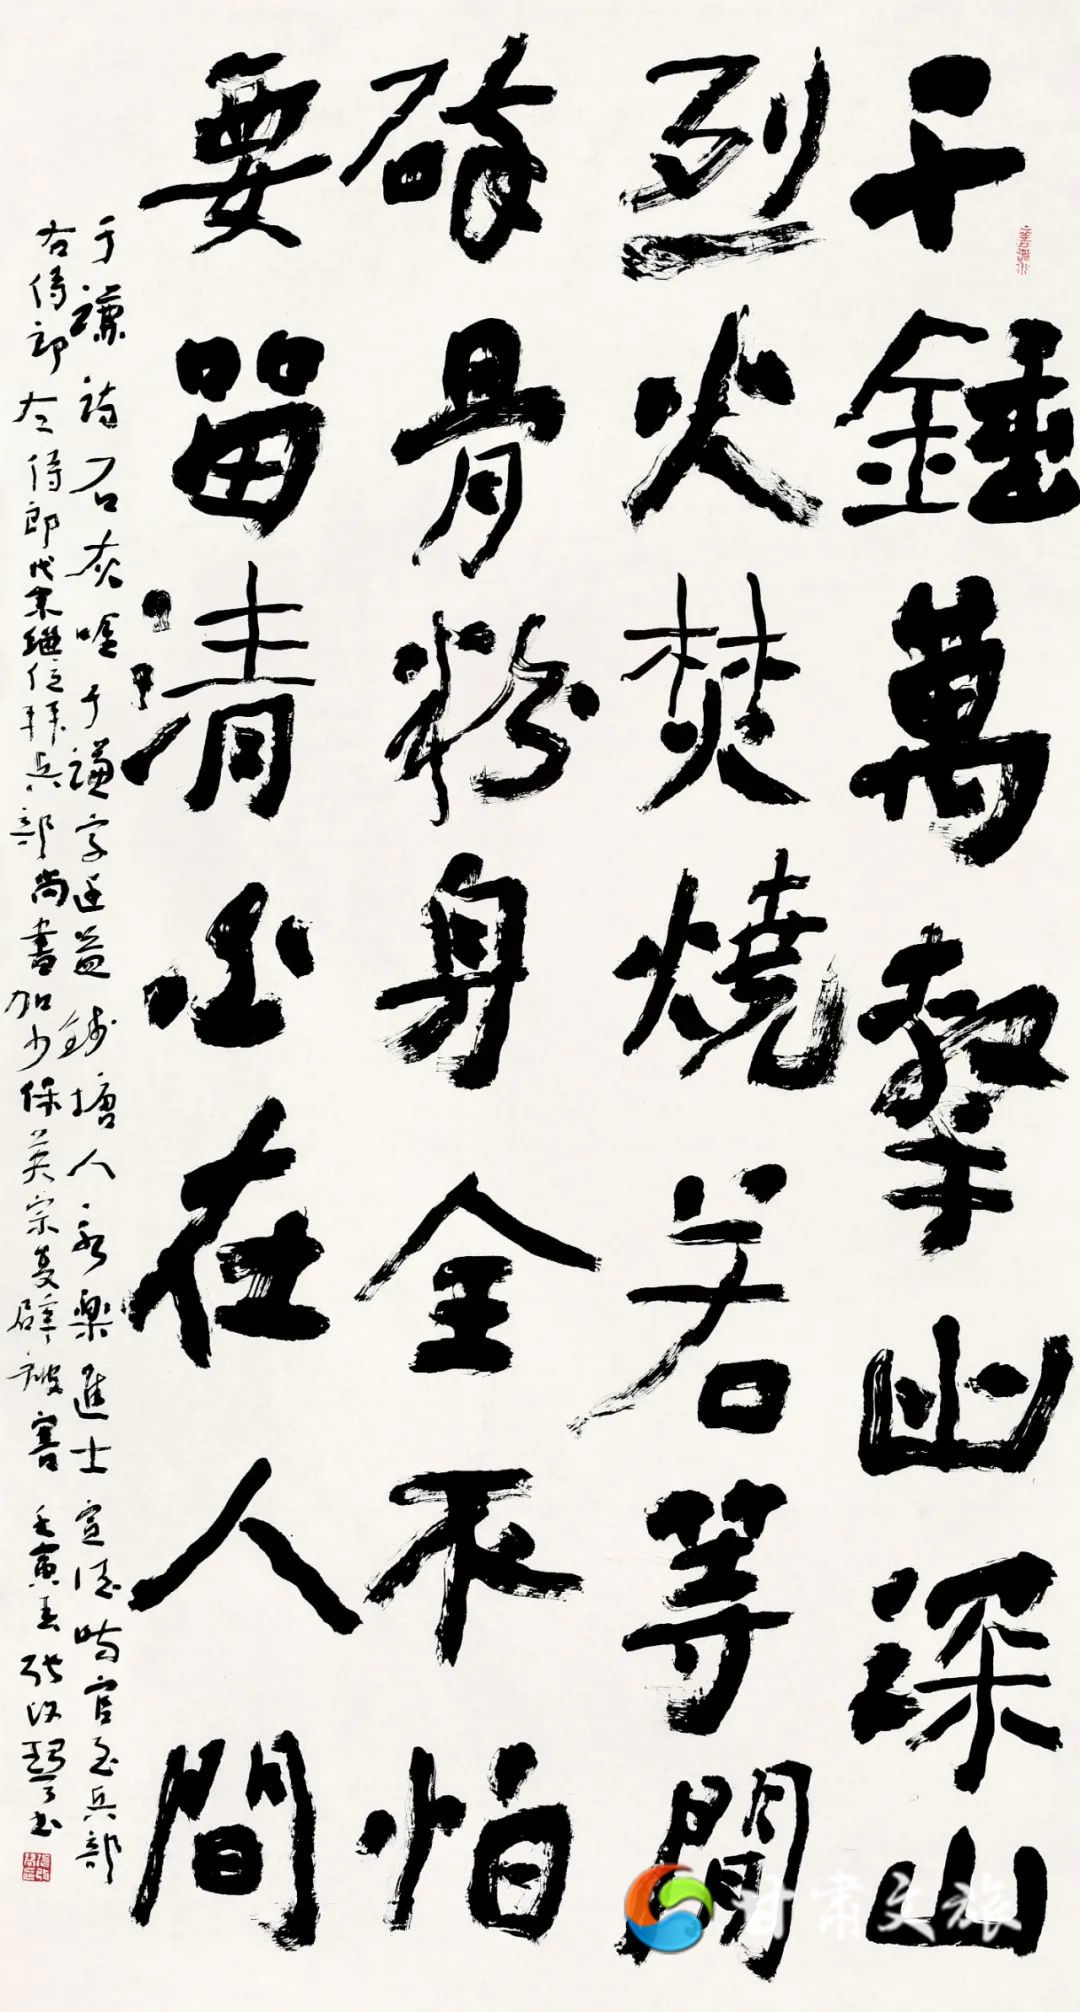 千錘萬擊出深山
烈火焚燒若等閒
碎骨粉身全不怕
要留清白在人間
于謙詩石灰吟于謙字廷益錢塘人永樂進士宣德時官至兵部
右侍郎左侍郎代宗繼位拜兵部尚書加少保英宗复辟被害 壬寅春張改琴書
甘肃文旅